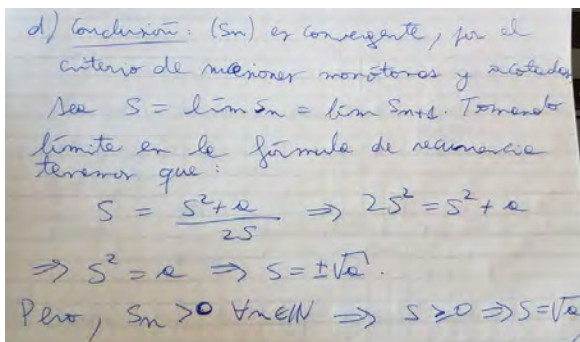 d) Conclusión: (Sn) es convergente, por el
criterio de sucesiones monótonas y acotadas
Sea S = lím Sn = lím Sn+1. Tomando
límite en la fórmula de recurrencia
tenemos que:
S = (S² + a) / 2S ⇒ 2S² = S² + a
⇒ S² = a ⇒ S = ±√a.
Pero, Sn > 0 ∀n∈ℕ ⇒ S ≥ 0 ⇒ S = √a